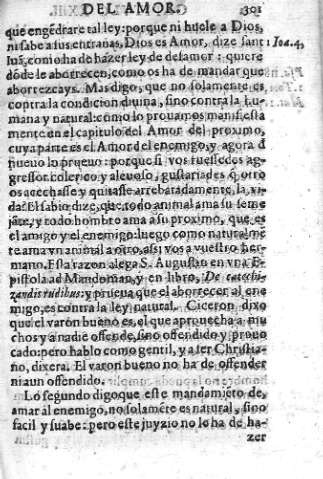 DEL AMOR.
301
que engēdrare tal ley: porque ni huele a Dios,
ni sabe a sus entrañas, Dios es Amor, dize sant
Ioa.4,
Iuā, como ha de hazer ley de desamor: quiere
dōde le aborrecen, como os ha de mandar que
aborrezcays. Mas digo, que no solamente es
contra la condicion diuina, sino contra la hu-
mana y natural: como lo prouamos manifiesta
mente en el capitulo del Amor del proximo,
cuya parte es el Amor del enemigo, y agora d̄
nueuo lo prueuo: porque si vos fuessedes ag-
gressor colerico y aleuoso, gustariades q̄ otro
os acechasse y quitasse arrebatadamente, la vi-
da? El sabio dize, que todo animal ama su seme
jāte, y todo hombre ama a su proximo, que es
el amigo y el enemigo: luego como naturalmē
te ama vn animal a otro, assi vos a vuestro her-
mano. Esta razon alega S. Augustin en vna E-
pistola ad Mandoniam, y en libro, De catechi-
zandis rudibus: y prueua que el aborrecer al ene
migo, es contra la ley natural. Ciceron dixo
que el varōn bueno es, el que aprouecha a mu
chos y a nadie offende, sino offendido y prouo
cado: pero hablo como gentil, y a ser Christia-
no, dixera. El varon bueno no ha de offender
ni aun offendido.
Lo segundo digo que este mandamiēto de,
amar al enemigo, no solamēte es natural, sino
facil y suabe: pero este juyzio no lo ha de ha-
zer